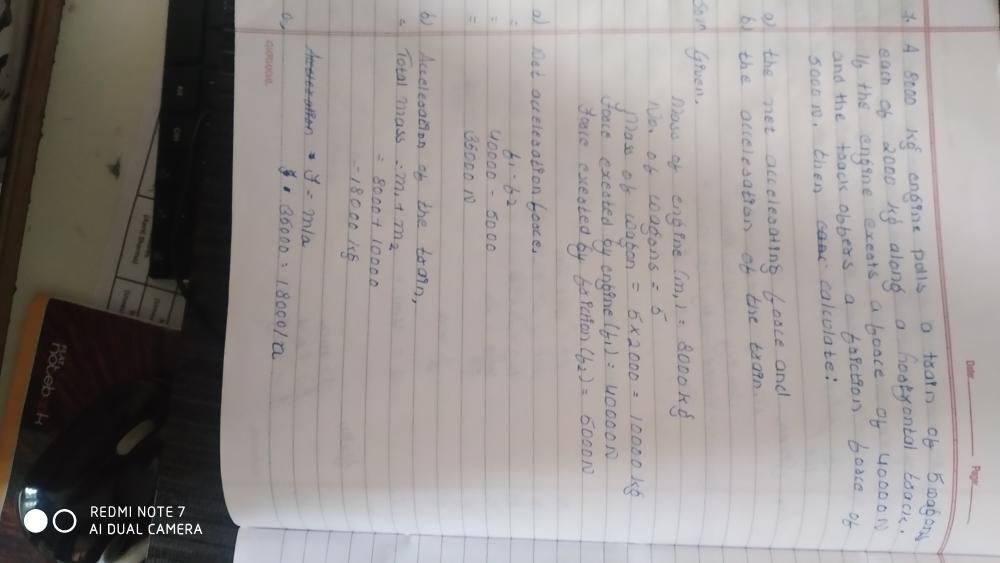 Date
Page
1. A 8000 kg engine pulls a train of 5 wagons
each of 2000 kg along a horizontal track.
If the engine exerts a force of 40000 N
and the track offers a friction force of
5000 N, then calculate:
a) the net accelerating force and
b) the acceleration of the train.
Soln Given,
Mass of engine (m1) = 8000 kg
No. of wagons = 5
Mass of wagon = 5 x 2000 = 10000 kg
force exerted by engine (f1) = 40000 N
force exerted by friction (f2) = 5000 N
a) Net acceleration force,
= f1 - f2
= 40000 - 5000
= 35000 N
b) Acceleration of the train,
= Total mass = m1 + m2
= 8000 + 10000
= 18000 kg
Acceleration = f = m/a
35000 = 18000/a
classmate
notebook
REDMI NOTE 7
AI DUAL CAMERA